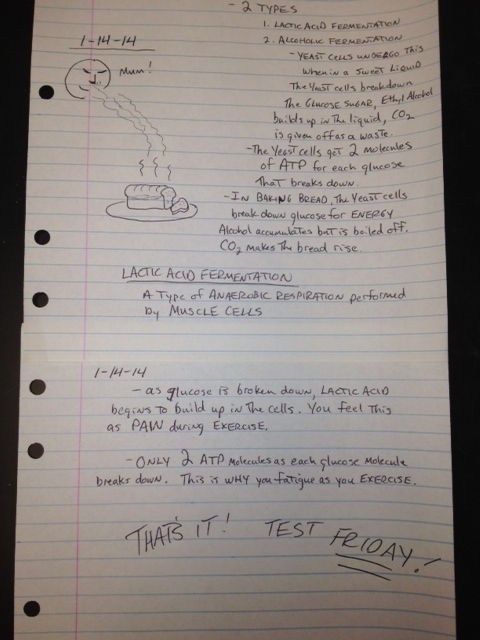 - 2 TYPES
1. LACTIC ACID FERMENTATION
2. ALCOHOLIC FERMENTATION
- YEAST CELLS UNDERGO This
when in a sweet LIQUID
The Yeast cells breakdown
The Glucose SUGAR, Ethyl Alcohol
builds up in the liquid, CO2
is given off as a waste.
- The Yeast cells get 2 molecules
of ATP for each glucose
That breaks down.
- IN BAKING BREAD, The Yeast cells
break down glucose for ENERGY
Alcohol accumulates but is boiled off.
CO2 makes the bread rise.
1-14-14
mum!
LACTIC ACID FERMENTATION
A Type of ANAEROBIC RESPIRATION performed
by MUSCLE CELLS
1-14-14
- as glucose is broken down, LACTIC ACID
begins to build up in the cells. You feel This
as PAIN during EXERCISE.
- ONLY 2 ATP molecules as each glucose molecule
breaks down. This is WHY you fatigue as you EXERCISE.
THAT'S IT! TEST FRIDAY!